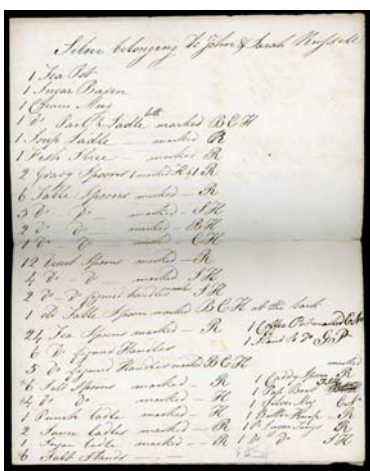 Silver belonging to John & Sarah Russell
1 Tea Pot
1 Sugar Bason
1 Cream Mug
1 Do Ladle both marked B C H
1 Soup Ladle — marked R
1 Fish Slice — marked R
2 Gravy Spoons 1 marked H & 1 R
6 Table Spoons marked — R
3 Do — Do — marked — S H
2 Do — Do — marked — B H
1 Do — Do — marked — C H
12 Desert Spoons marked — R
4 Do — Do — marked S H
2 Do — Do figured handles marks S H
1 do Table Spoon marked B C H at the back
24 Tea Spoons marked — R
6 Do figured Handles
5 Do figured Handles marked B C H
6 Salt Spoons marked — R
4 Do Do marked — H
1 Punch Ladle marked — H
2 Sauce Ladles marked — R
1 Sugar Ladle marked — R
6 Salt Stands
1 Coffee Pot marked
1 Stand to Do
marked
1 Caddy Spoon R
1 Pap Boat
1 Silver Mug
1 Butter Knife — R
1 Pr Sugar Tongs R
1 Pr Do Do S H